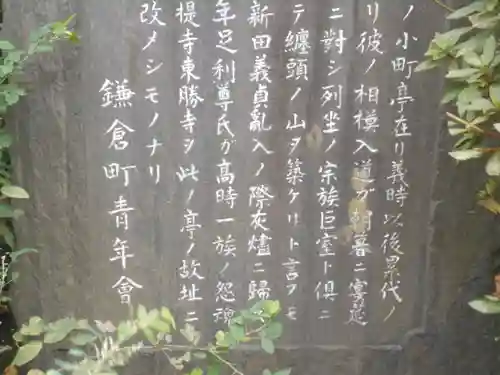 ノ小町亭在リ義時以後累代ノ
リ彼ノ相模入道ガ朝暮ニ宴筵
ニ對シ列坐ノ宗族巨室ト俱ニ
テ纏頭ノ山ヲ築ケリト言フモ
新田義貞亂入ノ際灰燼ニ歸
年足利尊氏ガ高時一族ノ怨魂
提寺東勝寺ヲ此ノ亭ノ故址ニ
改メシモノナリ
鎌倉町青年會